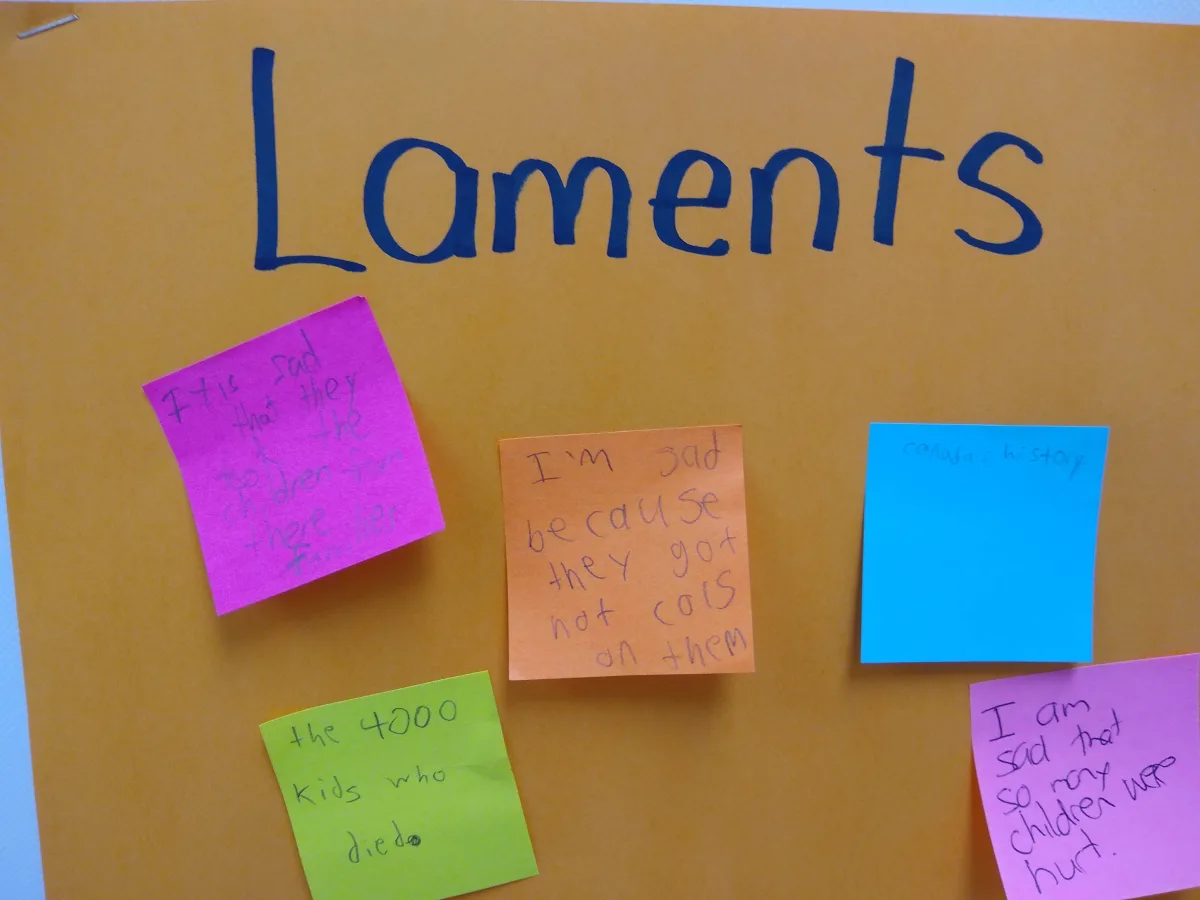 Laments
It is sad
that they
the
children from
there
families
I'm sad
because
they got
hot cols
on them
history
the 4000
kids who
died.
I am
sad that
so many
children were
hurt.